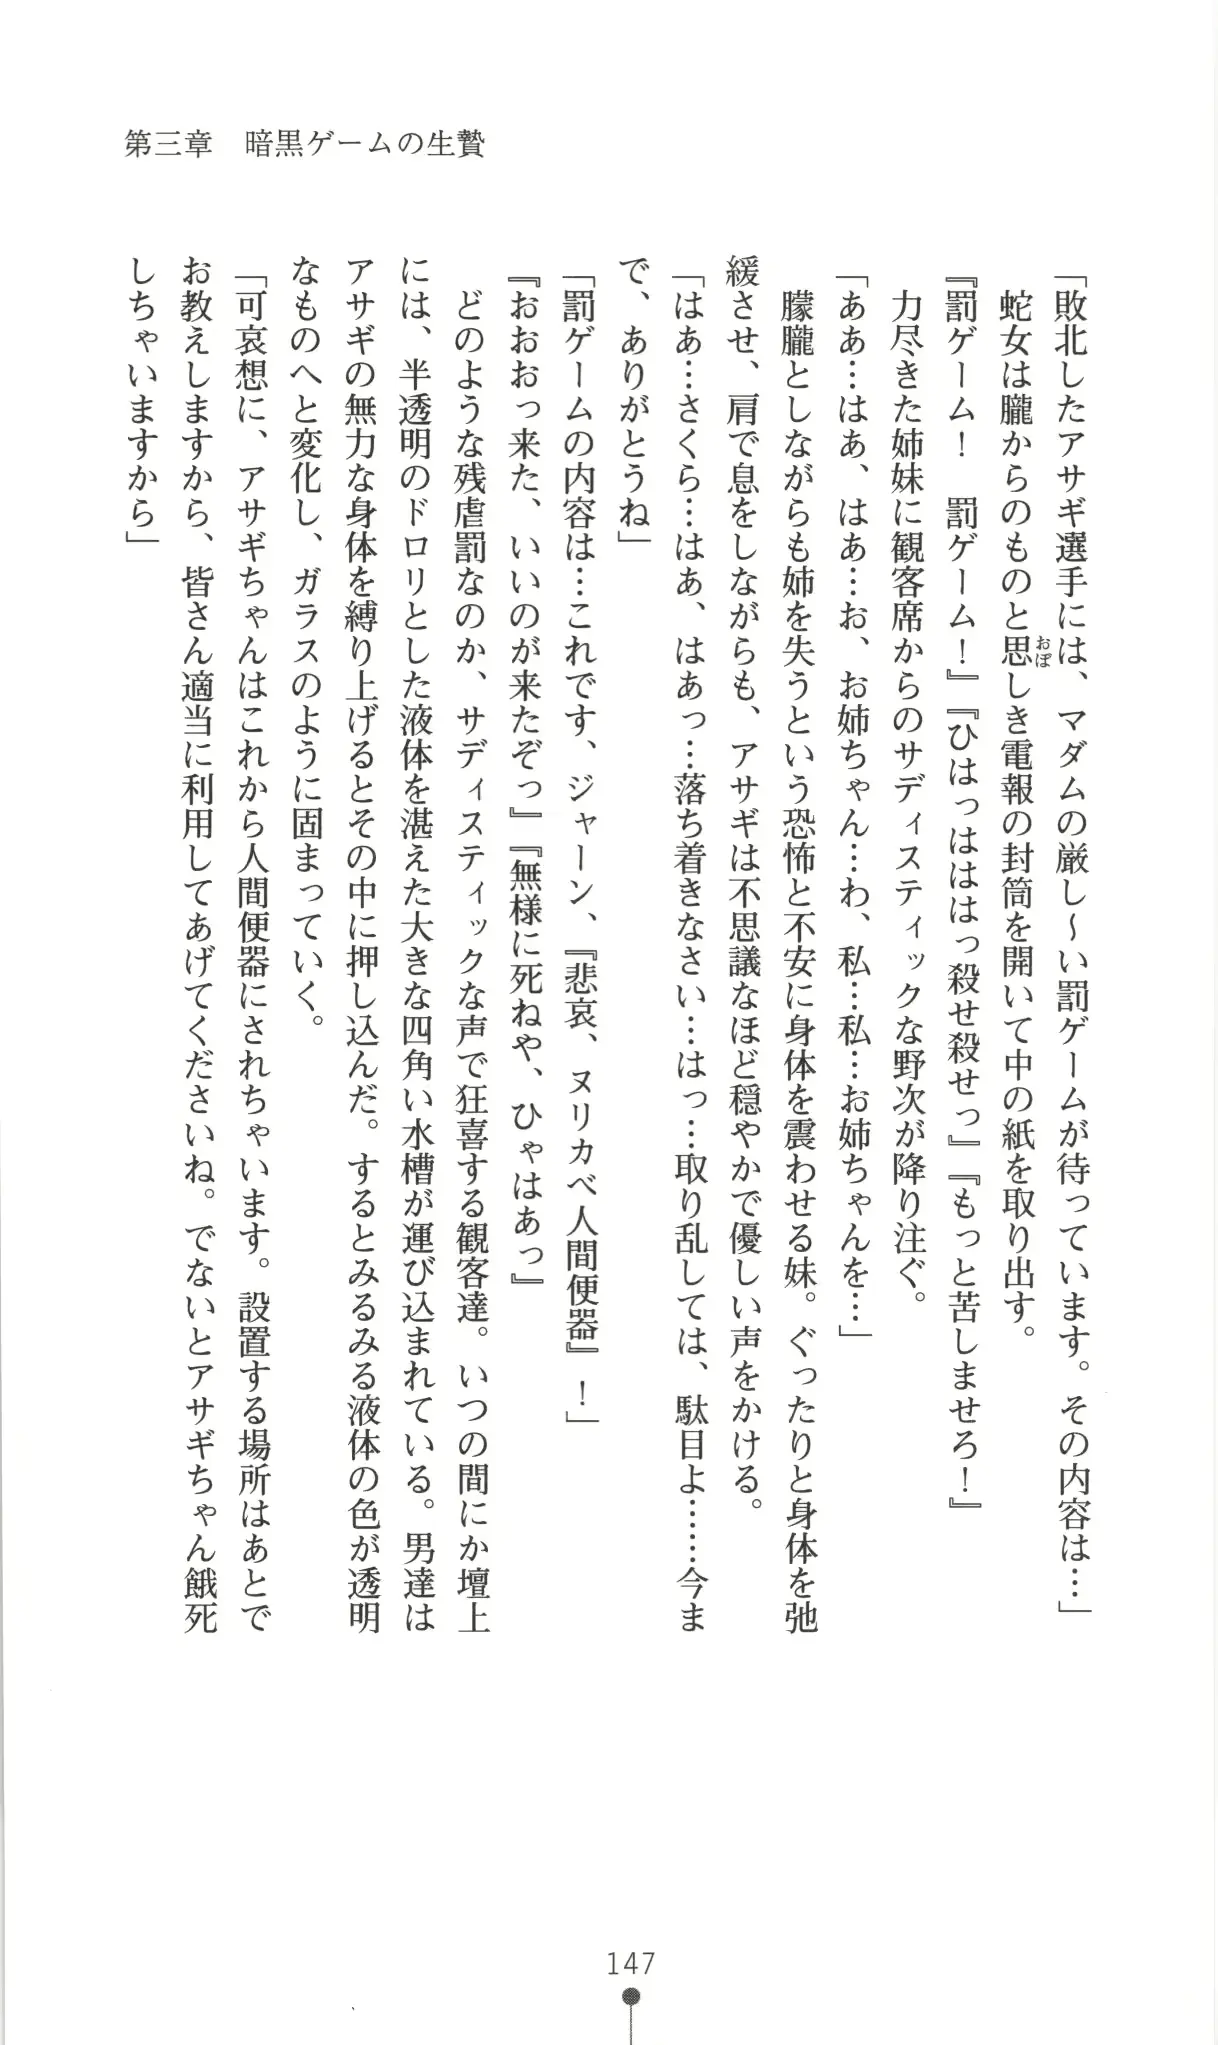 第三章　暗黒ゲームの生贄
「敗北したアサギ選手には、マダムの厳し～い罰ゲームが待っています。その内容は…」
　蛇女は朧からのものと思しき電報の封筒を開いて中の紙を取り出す。
おぼ
『罰ゲーム！　罰ゲーム！』『ひはっはははっ殺せ殺せっ』『もっと苦しませろ！』
　力尽きた姉妹に観客席からのサディスティックな野次が降り注ぐ。
「ああ…はあ、はあ…お、お姉ちゃん…わ、私…私…お姉ちゃんを…」
　朦朧としながらも姉を失うという恐怖と不安に身体を震わせる妹。ぐったりと身体を弛
緩させ、肩で息をしながらも、アサギは不思議なほど穏やかで優しい声をかける。
「はあ…さくら…はあ、はあっ…落ち着きなさい…はっ…取り乱しては、駄目よ……今ま
で、ありがとうね」
「罰ゲームの内容は…これです、ジャーン、『悲哀、ヌリカベ人間便器』！」
『おおおっ来た、いいのが来たぞっ』『無様に死ねや、ひゃはあっ』
　どのような残虐罰なのか、サディスティックな声で狂喜する観客達。いつの間にか壇上
には、半透明のドロリとした液体を湛えた大きな四角い水槽が運び込まれている。男達は
アサギの無力な身体を縛り上げるとその中に押し込んだ。するとみるみる液体の色が透明
なものへと変化し、ガラスのように固まっていく。
「可哀想に、アサギちゃんはこれから人間便器にされちゃいます。設置する場所はあとで
お教えしますから、皆さん適当に利用してあげてくださいね。でないとアサギちゃん餓死
しちゃいますから」
147